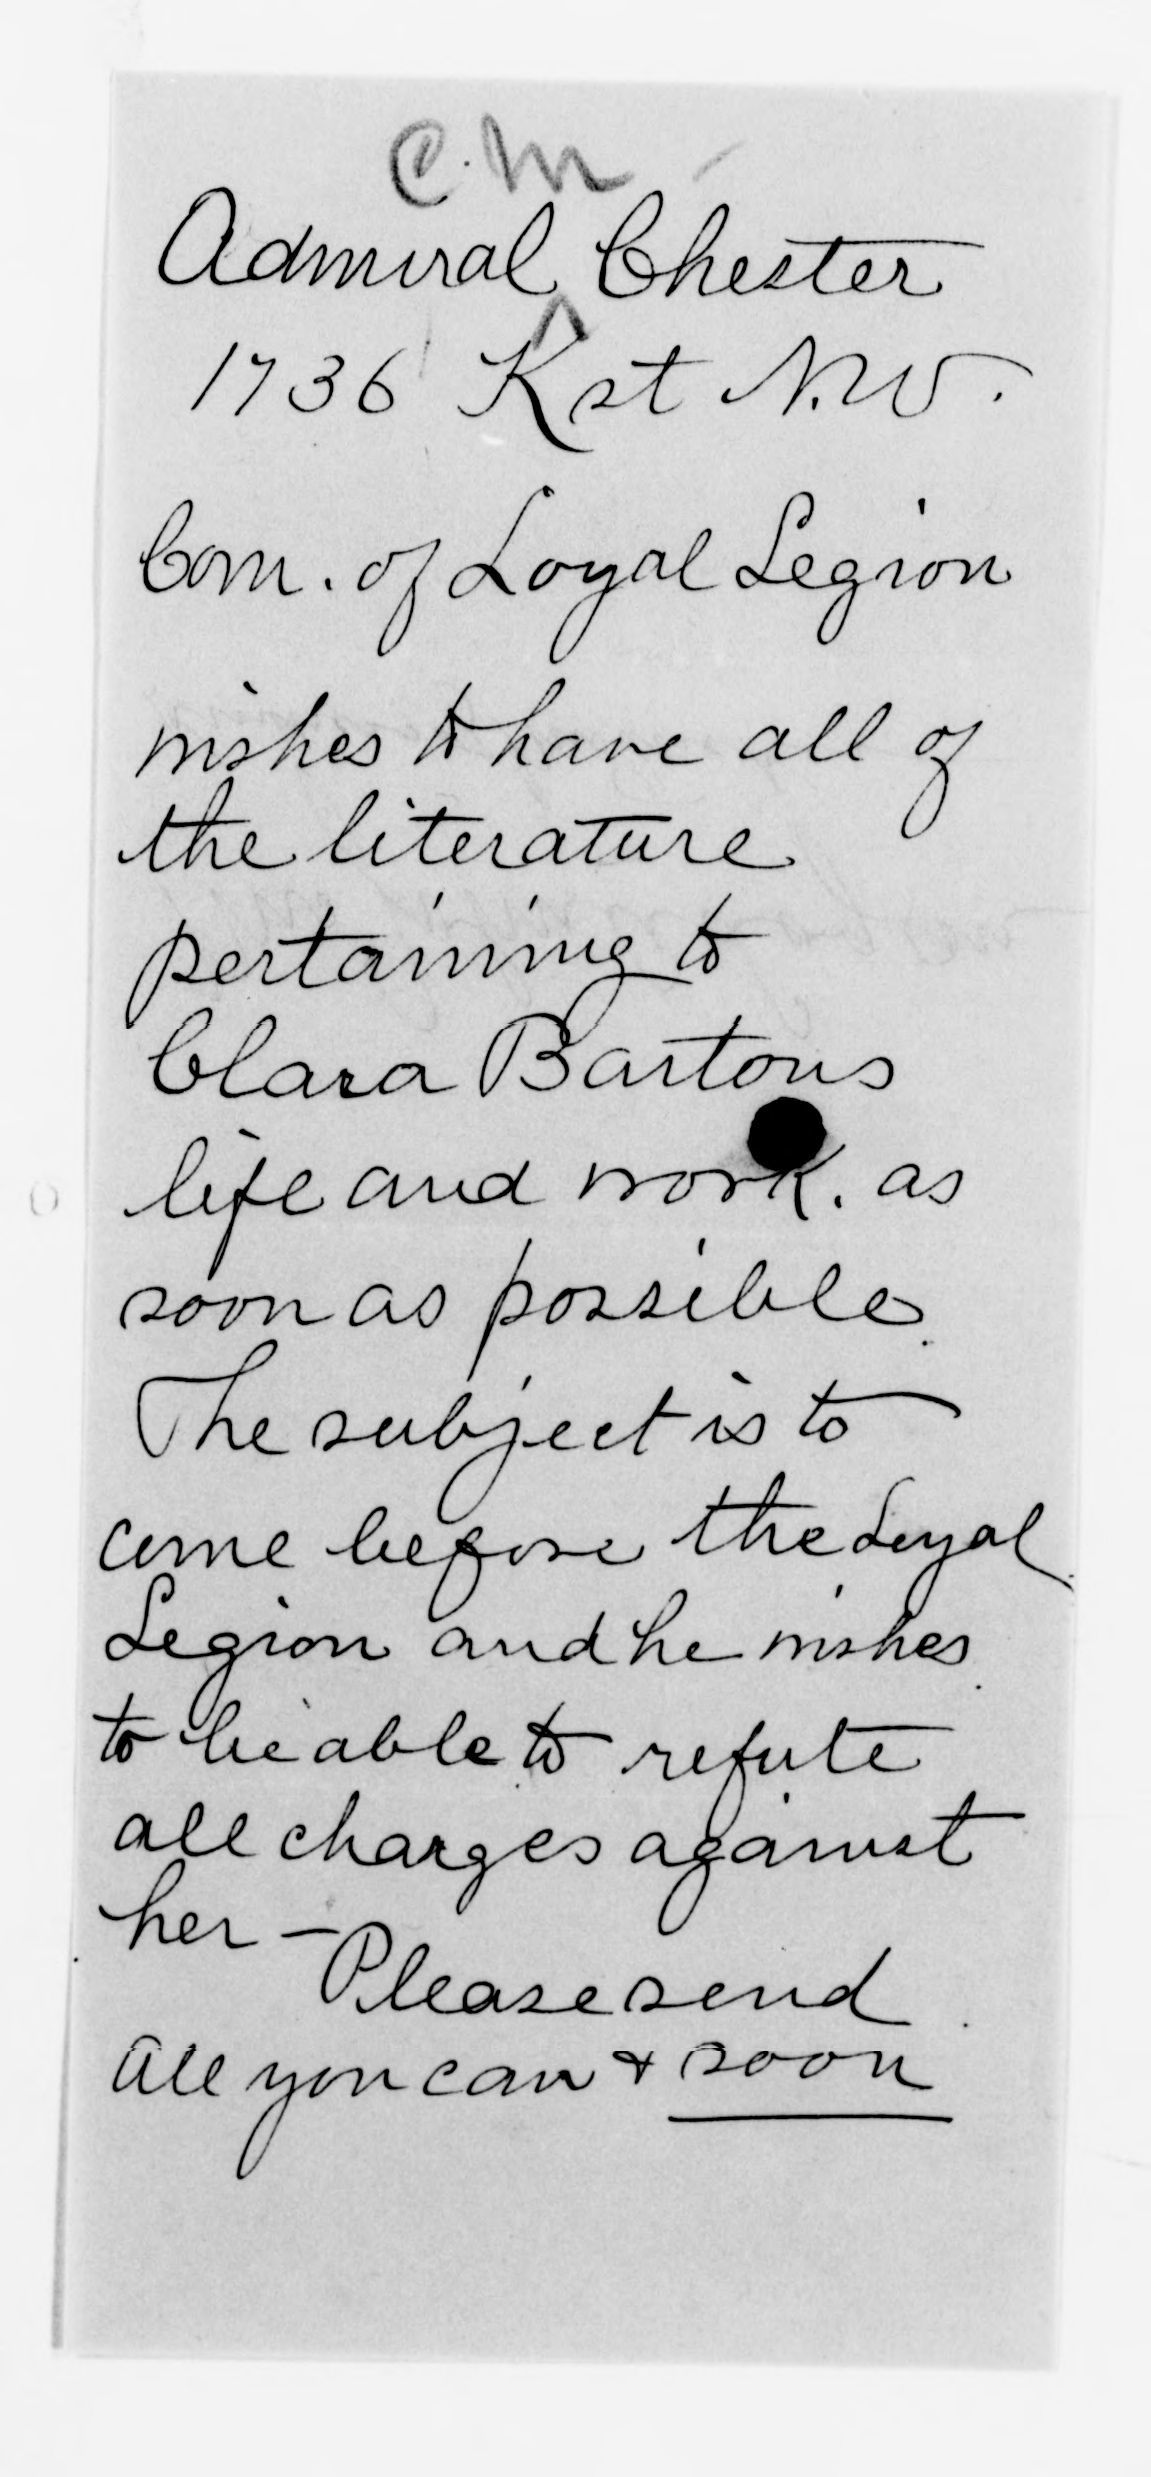 C. M
Admiral ^ Chester
1736 K st N.W.
Com. of Loyal Legion
wishes to have all of
the literature
pertaining to
Clara Bartons
life and work. as
soon as possible.
The subject is to
come before the Loyal
Legion and he wishes
to be able to refute
all charges against
her —
Please send
all you can & soon